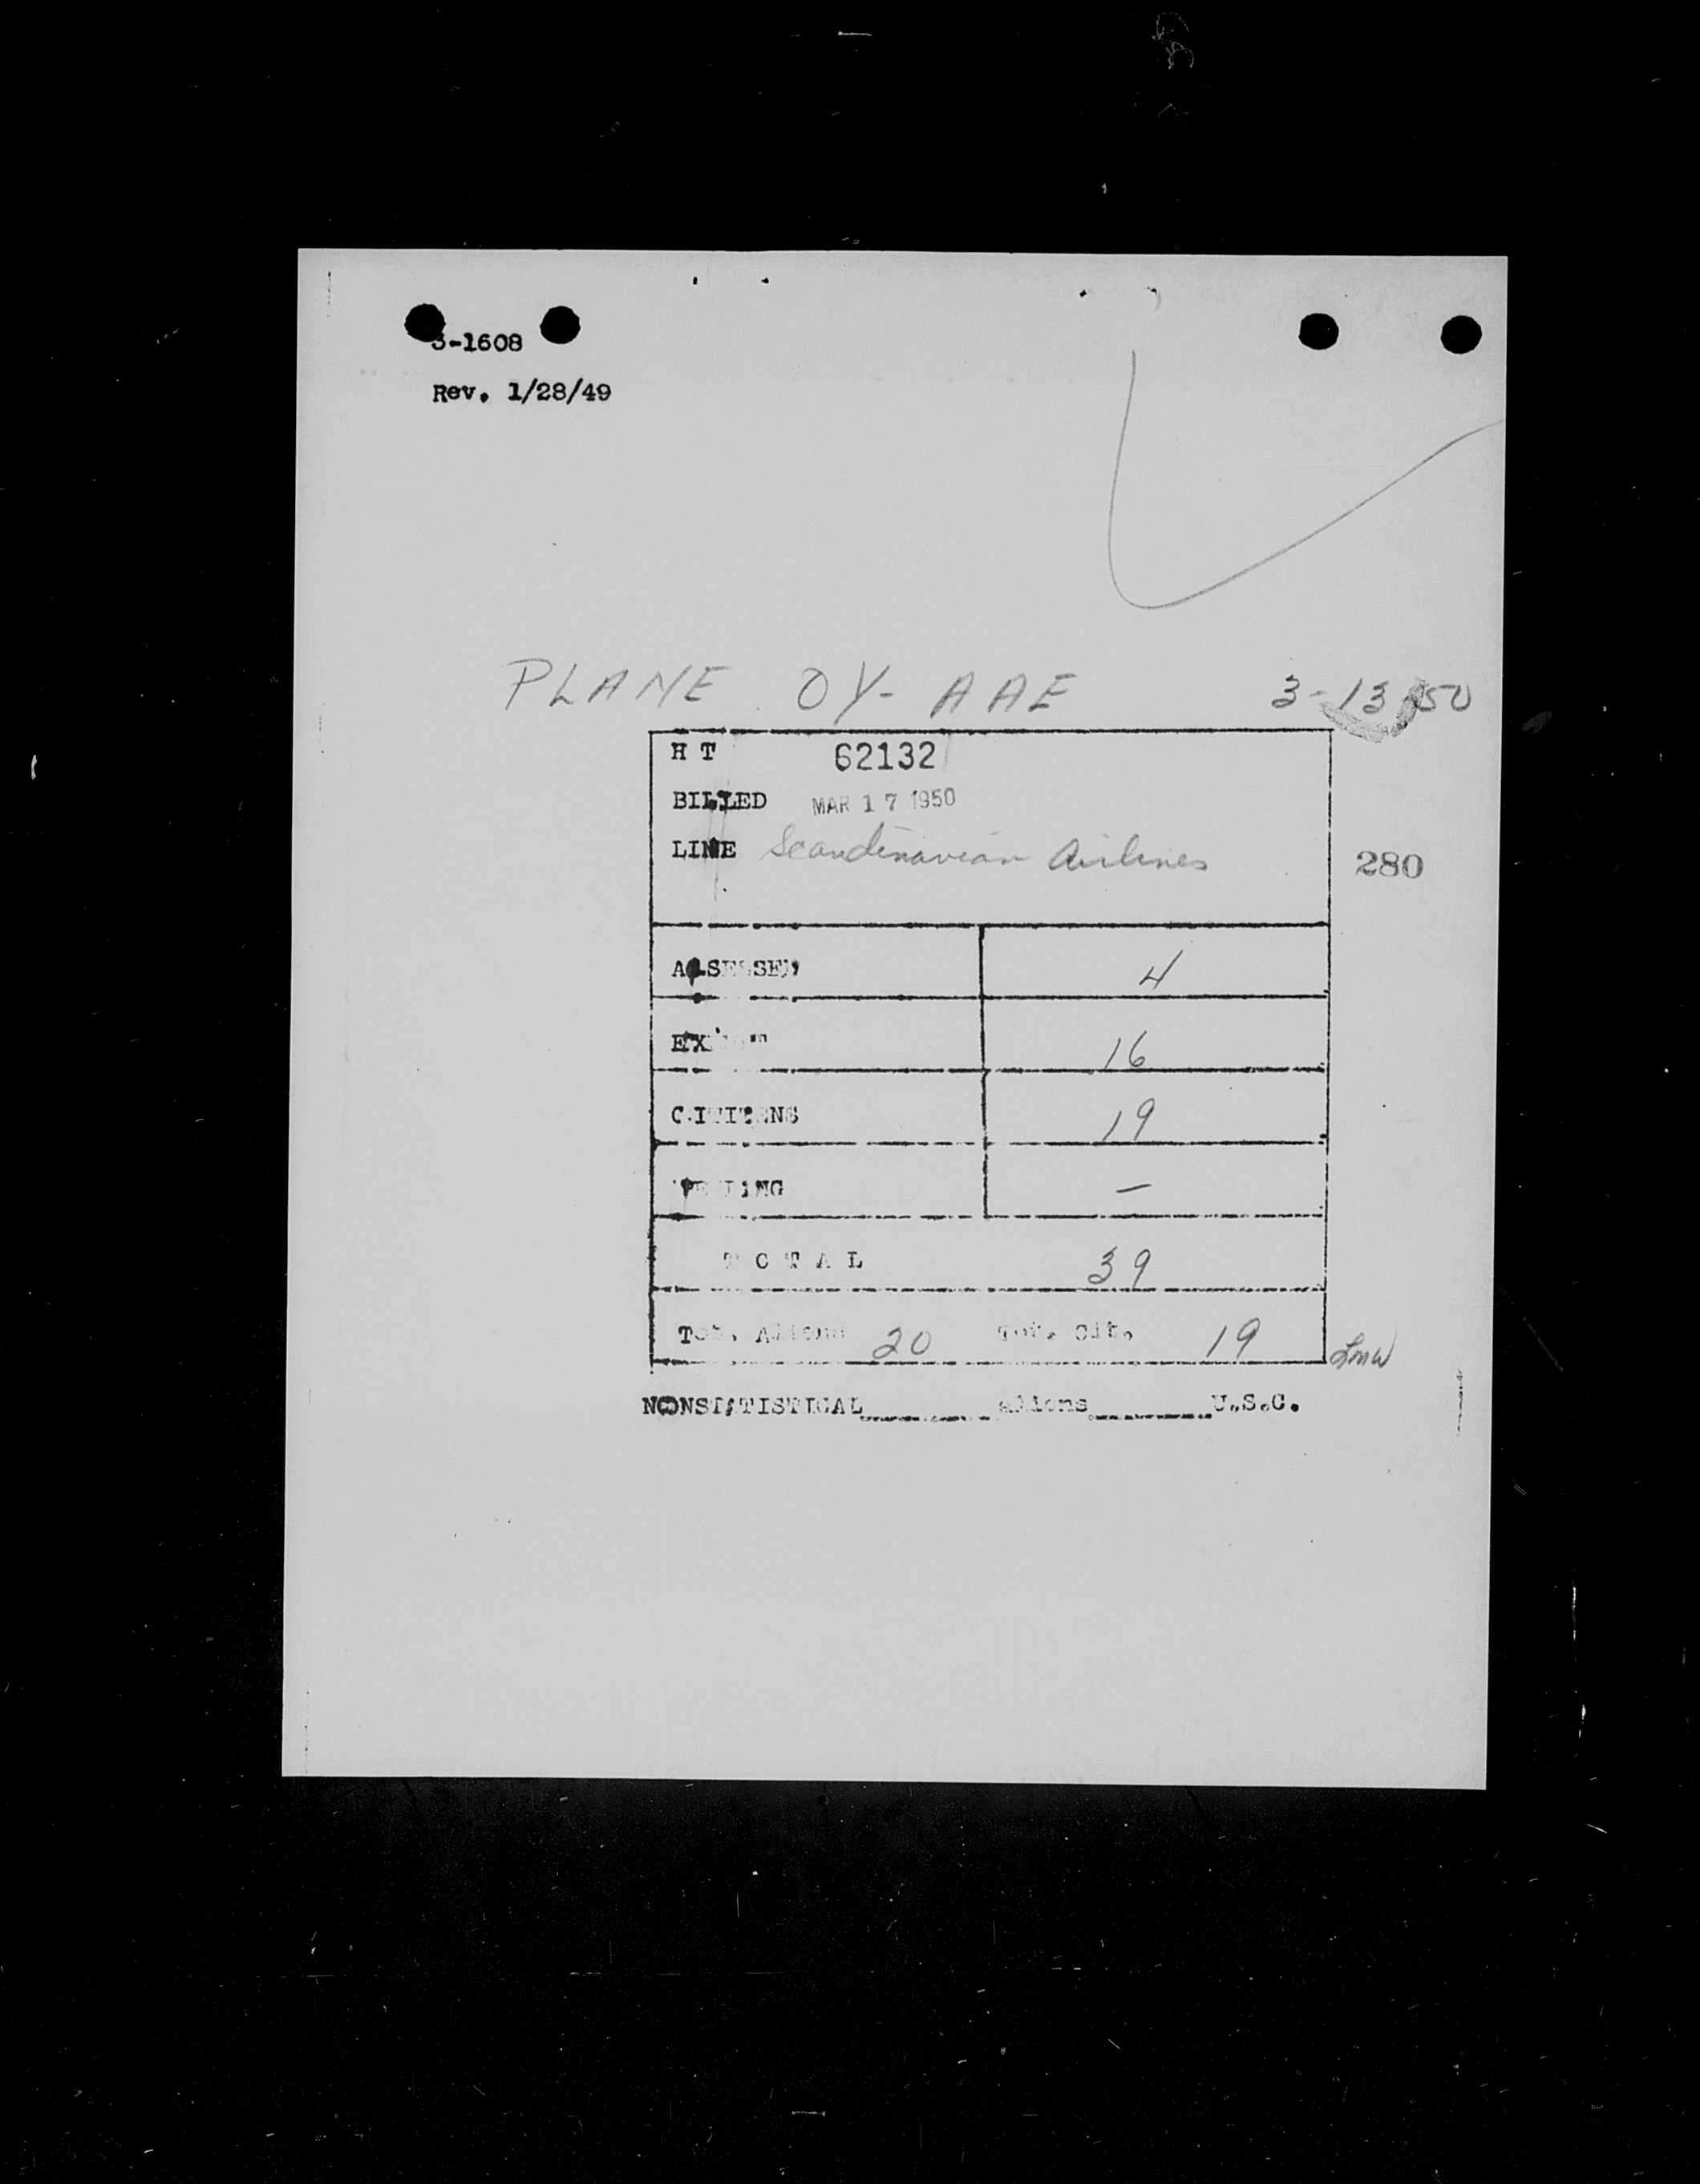 3-1608
Rev. 1/28/49
PLANE OY-AAE 3-13-50
H T 62132
BILLED MAR 17 1950
LINE Scandinavian Airlines
280
ASSESSED 4
EXEMPT 16
CITIZENS 19
PENDING —
T O T A L 39
Tot. Aliens 20 Tot. Cit. 19
NONSTATISTICAL aliens U.S.C.